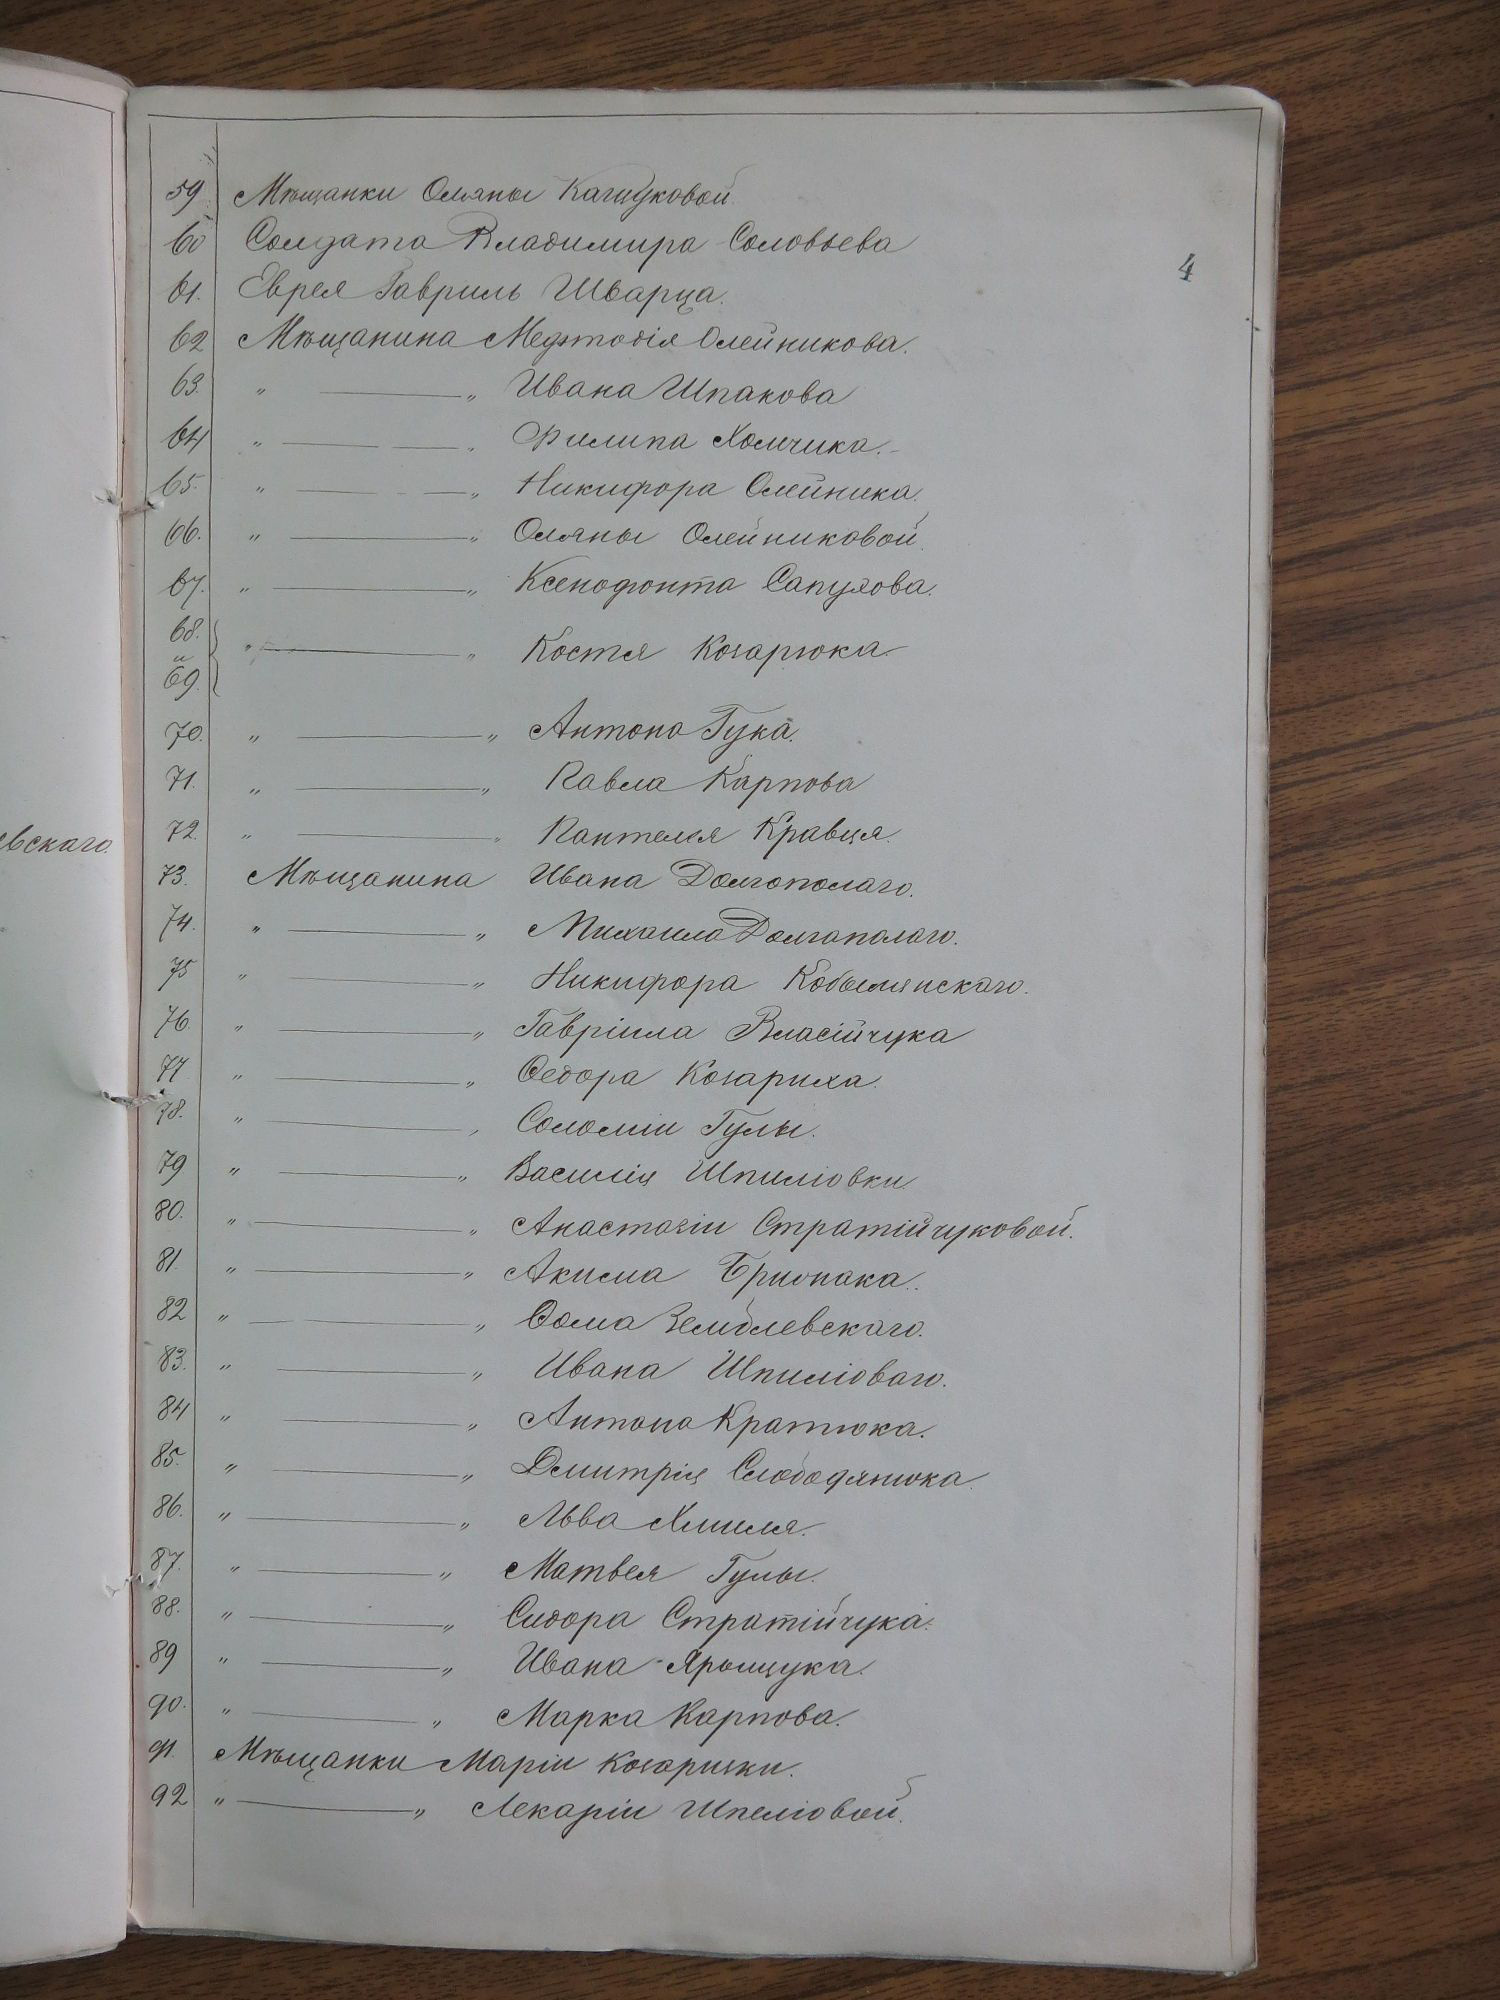 4
59. Мѣщанки Оляны Качуковой.
60 Солдата Владимира Соловьева
61. Еврея Гавриль Шварца.
62 Мѣщанина Мефтодія Олейникова.
63. " ——— " Ивана Шпакова
64 " ——— " Филипа Хомчика.
65. " ——— " Никифора Олейника.
66. " ——— " Оляны Олейниковой.
67. " ——— " Ксенофонта Сапулова.
68. и 69. " ——— " Костя Когарюка
70. " ——— " Антона Гука.
71. " ——— " Павла Карпова
72. " ——— " Пантелея Кравця.
евскаго.
73. Мѣщанина Ивана Долгополаго.
74. " ——— " Михаила Долгаполаго.
75 " ——— " Никифора Кобылянскаго.
76. " ——— " Гавріила Власійчука
77 " ——— " Ѳедора Когарика.
78. " ——— " Соломіи Гулы.
79 " ——— " Василія Шпиліовки.
80. " ——— " Анастазіи Стратійчуковой.
81. " ——— " Акима
82 " ——— " Ѳома Земблевскаго.
83. " ——— " Ивана Шпиліоваго.
84 " ——— " Антона Кратюка.
85. " ——— " Дмитрія Слободянюка.
86. " ——— " Льва Хмиля.
87. " ——— " Матвея Гулы.
88. " ——— " Сидора Стратійчука.
89 " ——— " Ивана Ярыщука.
90. " ——— " Марка Карпова.
91. Мѣщанки Маріи
92 " ——— " Лекаріи Шпеліовой.